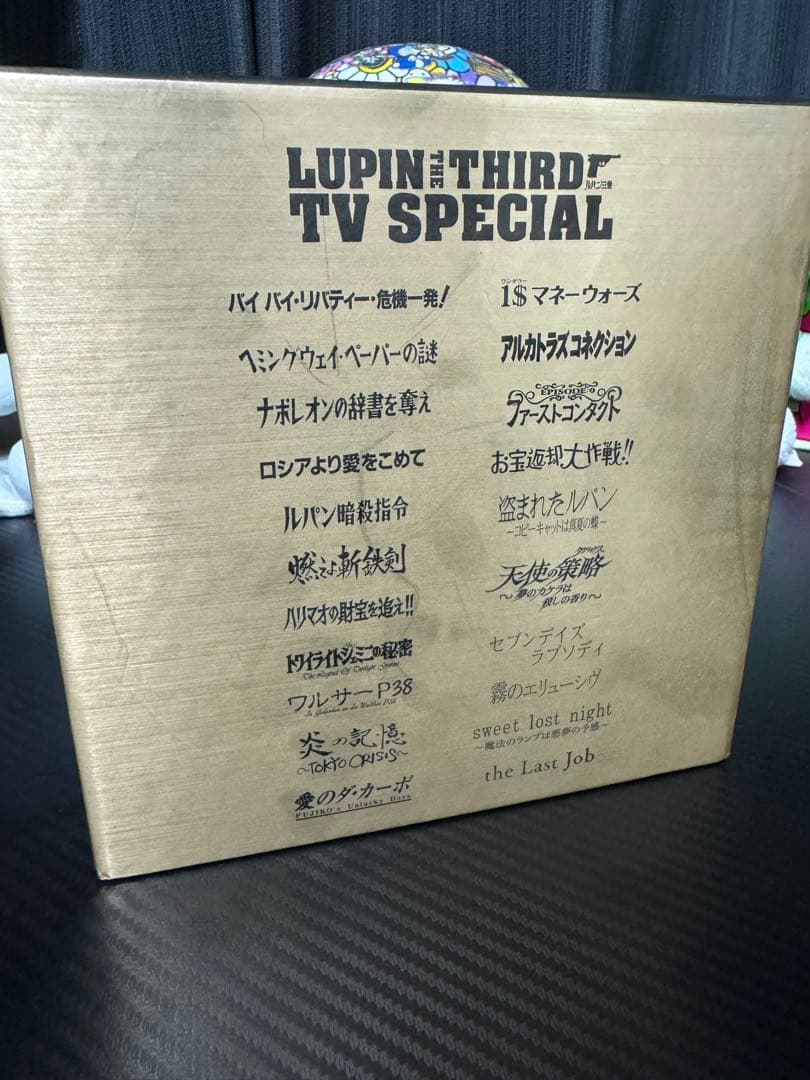 LUPIN THE THIRD
ルパン三世
TV SPECIAL
バイバイ・リバティー・危機一発!
ヘミングウェイ・ペーパーの謎
ナポレオンの辞書を奪え
ロシアより愛をこめて
ルパン暗殺指令
燃えよ斬鉄剣
ハリマオの財宝を追え!!
トワイライトジェミニの秘密
The Legend Of Twilight Gemini
ワルサーP38
In Gedenken an die Walther P38
炎の記憶
~TOKYO CRISIS~
愛のダ・カーポ
FUJIKO's Unlucky Days
ワンダラー
1$マネーウォーズ
アルカトラズコネクション
EPISODE:0
ファーストコンタクト
お宝返却大作戦!!
盗まれたルパン
~コピーキャットは真夏の蝶~
タクティクス
天使の策略
~夢のカケラは
殺しの香り~
セブンデイズ
ラプソディ
霧のエリューシヴ
sweet lost night
~魔法のランプは悪夢の予感~
the Last Job